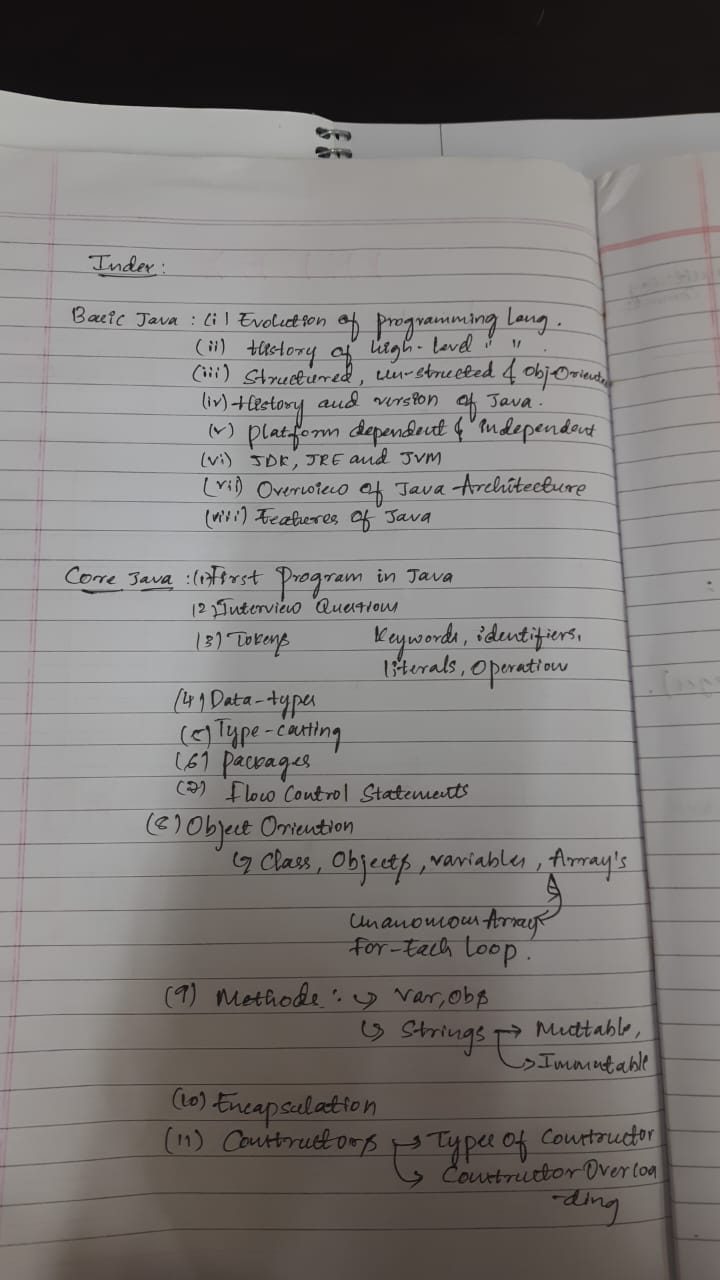 Index:
Basic Java : (i) Evolution of programming Lang.
(ii) History of high-level " " .
(iii) Structured, un-structed & Obj-Oriented
(iv) History and version of Java.
(v) Platform dependent & independent
(vi) JDK, JRE and JVM
(vii) Overview of Java Architecture
(viii) Features of Java
Core Java : (1) First Program in Java
(2) Interview Question
(3) Tokens Keywords, identifiers,
literals, Operation
(4) Data-types
(5) Type-casting
(6) Packages
(7) Flow Control Statements
(8) Object Oriention
↳ Class, Objects, variables, Array's
Unanomous Array
For-Each Loop.
(9) Methods : ↳ Var, Obs
↳ Strings → Muttable,
↳ Immutable
(10) Encapsulation
(11) Constructors → Types of Constructor
↳ Constructor Overloa
-ding